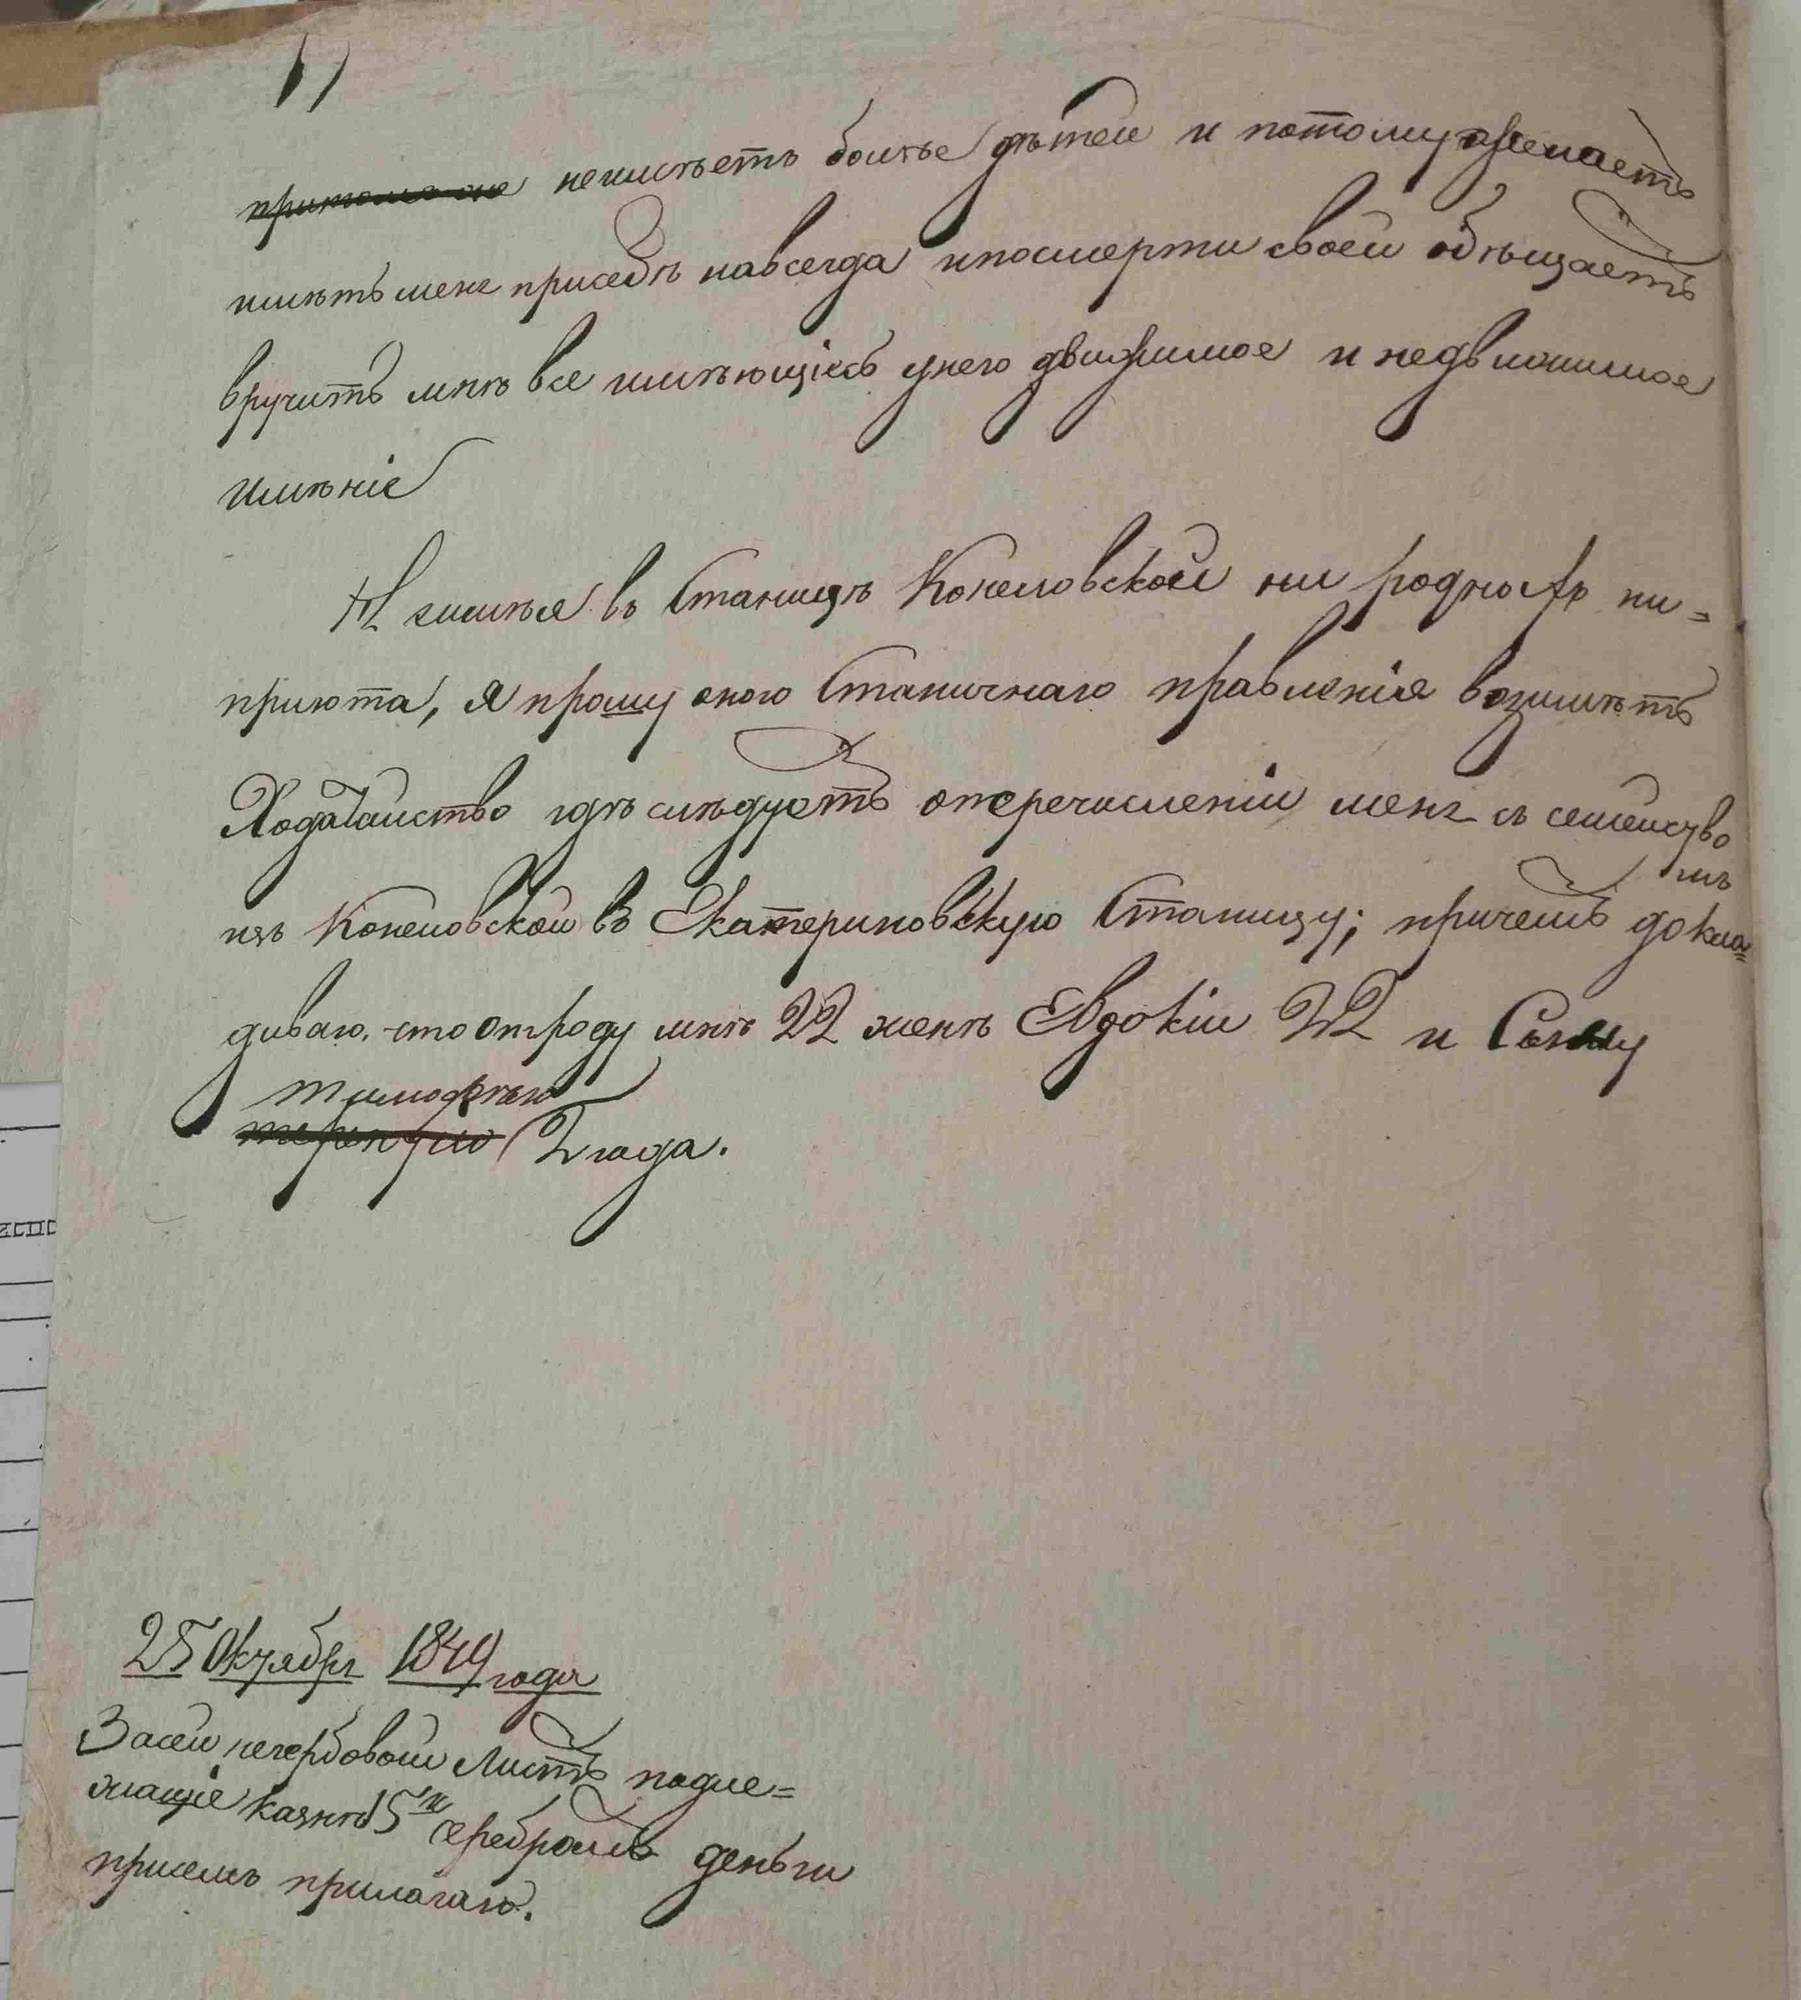 притомъ оне неимѣетъ болѣе дѣтей и потому желаетъ
имѣть меня присебѣ навсегда ипосмерти своей обѣщаетъ
вручить мнѣ все имѣющіесь унего движимое и недвижимое
имѣніе
Не имѣя въ Станицѣ Конеловской ни родности ни=
приюта, я прошу оного Станичнаго правленія возимѣть
Ходатайство гдѣ слѣдуетъ оперечисленіи меня съ семейство
мъ
изъ Конеловской въ Екатериновскую Станицу; причемъ докла=
диваю, что отроду мнѣ 22 женѣ Евдокіи 22 и Сыну
тимофѣю
терентію 2 года.
25 Октября 1849 года
Засей негербовой Листъ подле=
жащіе казнѣ 15 к серебромъ деньги
присемъ прилагаю.